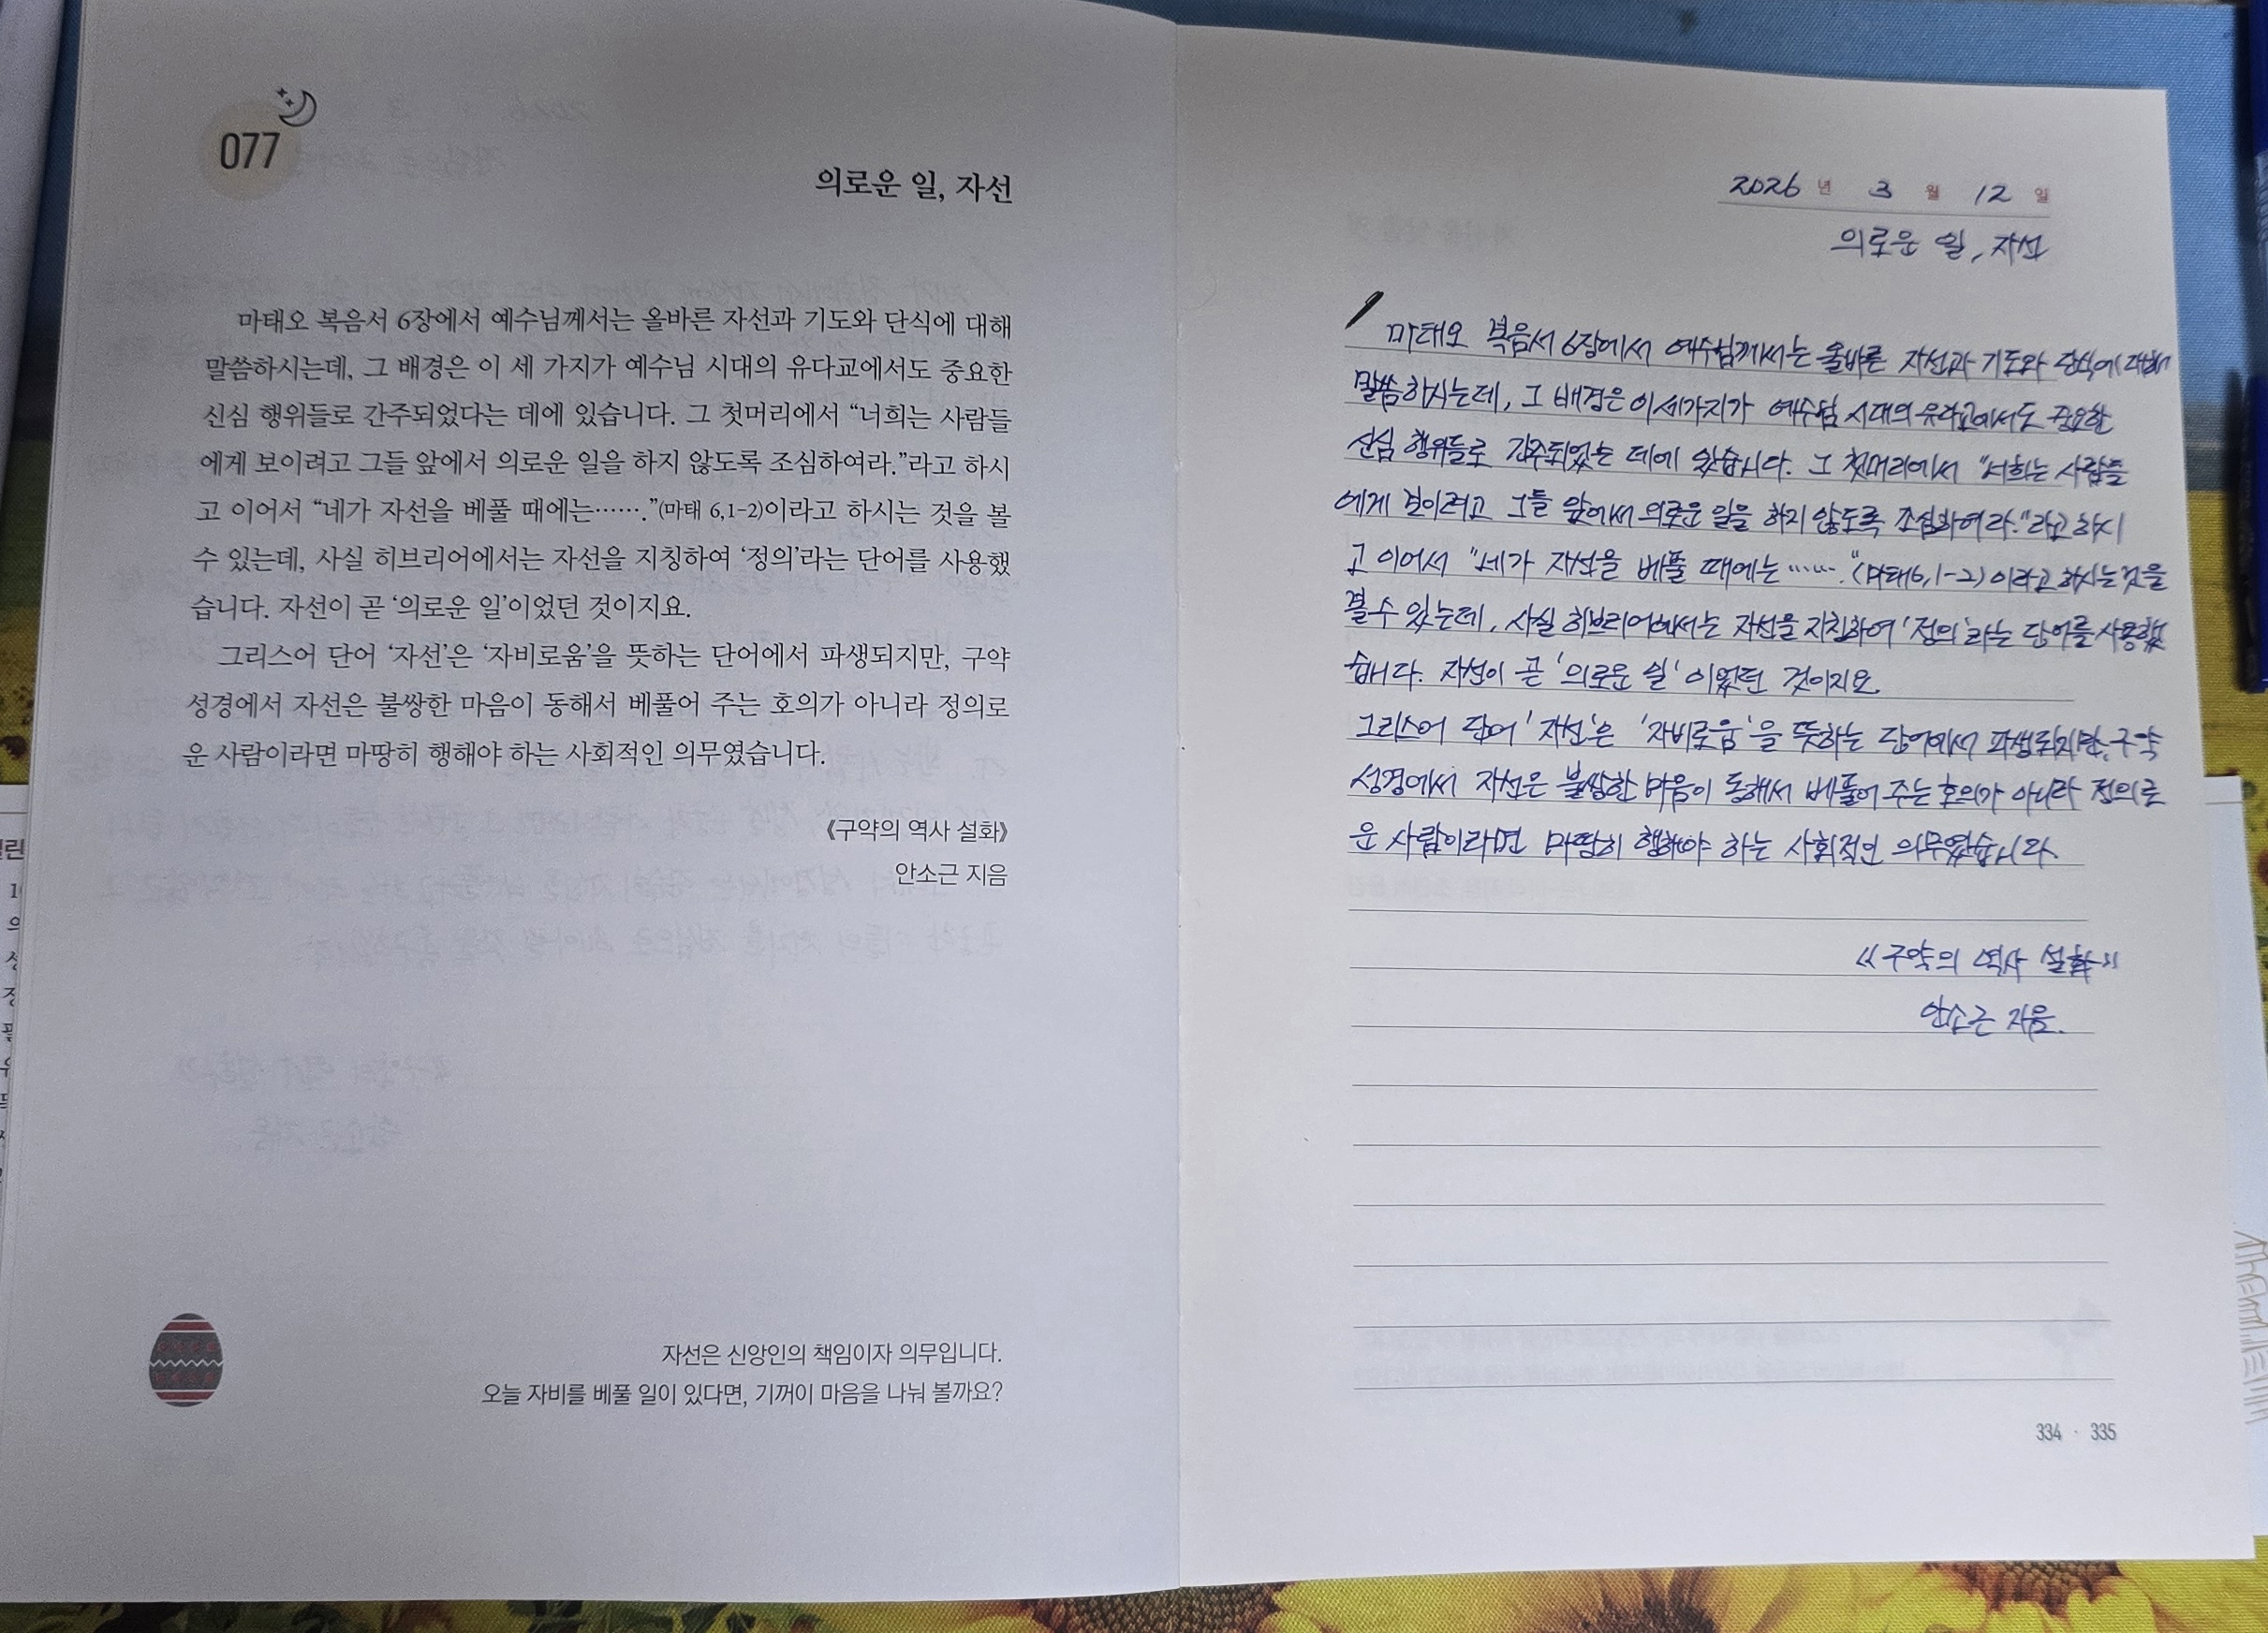 077
의로운 일, 자선
마태오 복음서 6장에서 예수님께서는 올바른 자선과 기도와 단식에 대해
말씀하시는데, 그 배경은 이 세 가지가 예수님 시대의 유다교에서도 중요한
신심 행위들로 간주되었다는 데에 있습니다. 그 첫머리에서 “너희는 사람들
에게 보이려고 그들 앞에서 의로운 일을 하지 않도록 조심하여라.”라고 하시
고 이어서 “네가 자선을 베풀 때에는…….”(마태 6,1-2)이라고 하시는 것을 볼
수 있는데, 사실 히브리어에서는 자선을 지칭하여 ‘정의’라는 단어를 사용했
습니다. 자선이 곧 ‘의로운 일’이었던 것이지요.
그리스어 단어 ‘자선’은 ‘자비로움’을 뜻하는 단어에서 파생되지만, 구약
성경에서 자선은 불쌍한 마음이 동해서 베풀어 주는 호의가 아니라 정의로
운 사람이라면 마땅히 행해야 하는 사회적인 의무였습니다.
《구약의 역사 설화》
안소근 지음
자선은 신앙인의 책임이자 의무입니다.
오늘 자비를 베풀 일이 있다면, 기꺼이 마음을 나눠 볼까요?
2026 년 3 월 12 일
의로운 일, 자선
마태오 복음서 6장에서 예수님께서는 올바른 자선과 기도와 단식에 대해
말씀하시는데, 그 배경은 이 세가지가 예수님 시대의 유다교에서도 중요한
신심 행위들로 간주되었는 데에 있습니다. 그 첫머리에서 "너희는 사람들
에게 보이려고 그들 앞에서 의로운 일을 하지 않도록 조심하여라."라고 하시
고 이어서 "네가 자선을 베풀 때에는……."(마태6,1-2)이라고 하시는 것을
볼 수 있는데, 사실 히브리어에서는 자선을 지칭하여 '정의'라는 단어를 사용했
습니다. 자선이 곧 '의로운 일' 이었던 것이지요
그리스어 단어 '자선'은 '자비로움'을 뜻하는 단어에서 파생되지만, 구약
성경에서 자선은 불쌍한 마음이 동해서 베풀어 주는 호의가 아니라 정의로
운 사람이라면 마땅히 행해야 하는 사회적인 의무였습니다.
《구약의 역사 설화》
안소근 지음.
334 · 335